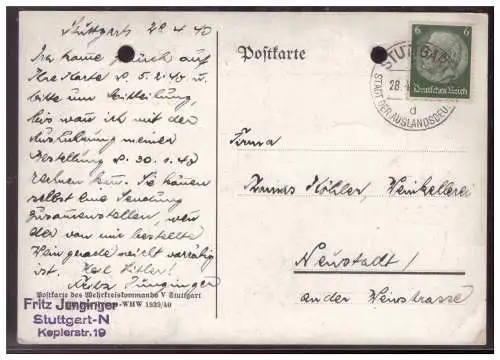 Stuttgart 28.4.40
Ich komme zurück auf
Ihre Karte v. 5.2.40 u.
bitte um Mitteilung,
bis wann ich mit der
Ausführung meiner
Bestellung v. 30.1.40
rechnen kann. Sie können
selbst eine Sendung
zusammenstellen, wenn
der von mir bestellte
Wein gerade nicht vorrätig
ist. Heil Hitler!
Fritz Junginger
Postkarte des Wehrkreiskommando V Stuttgart
-WHW 1939/40
Fritz Junginger
Stuttgart-N
Keplerstr. 19
Postkarte
STUTTGART
28.4.
STADT DER AUSLANDSDEU
d
6 6
Deutsches Reich
Firma
Köhler, Weinkellerei
Neustadt/
an der Weinstrasse